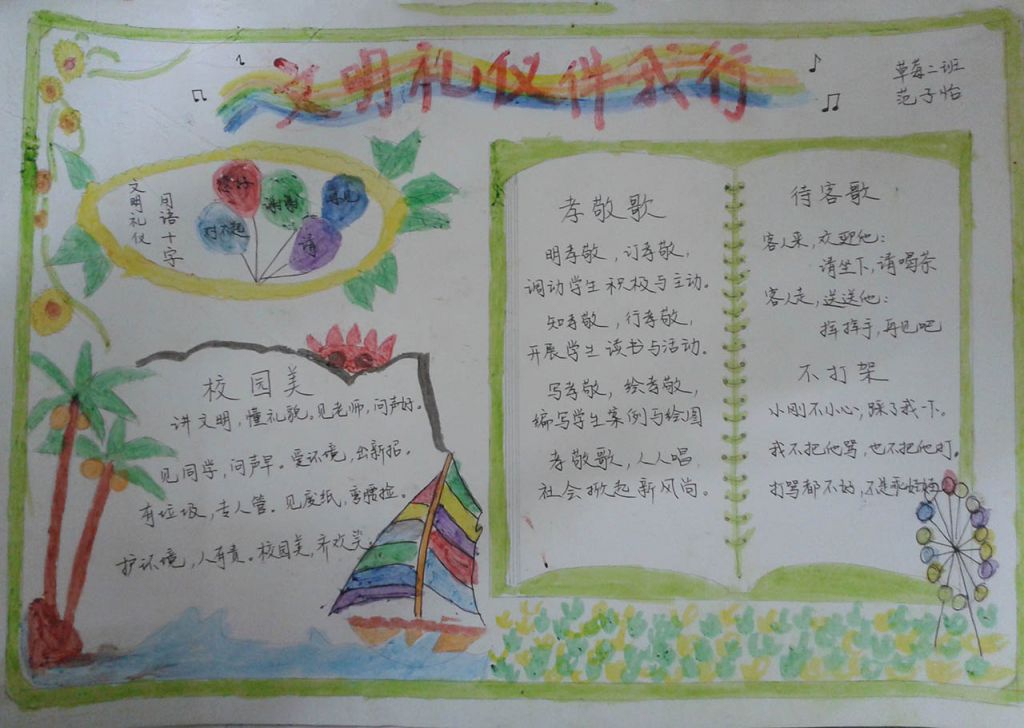 文明礼仪伴我行
草莓二班
范子怡
文明礼仪
用语十字
您好
谢谢
再见
对不起
请
校园美
讲文明，懂礼貌，见老师，问声好。
见同学，问声早。爱环境，出新招。
有垃圾，专人管。见废纸，弯腰捡。
护环境，人有责。校园美，齐欢笑。
孝敬歌
明孝敬，订孝敬，
调动学生积极与主动。
知孝敬，行孝敬，
开展学生读书与活动。
写孝敬，绘孝敬，
编写学生案例与绘图
孝敬歌，人人唱，
社会掀起新风尚。
待客歌
客人来，欢迎他：
请坐下，请喝茶
客人走，送送他：
挥挥手，再见吧
不打架
小刚不小心，踩了我一下。
我不把他骂，也不把他打。
打骂都不好，不是乖好